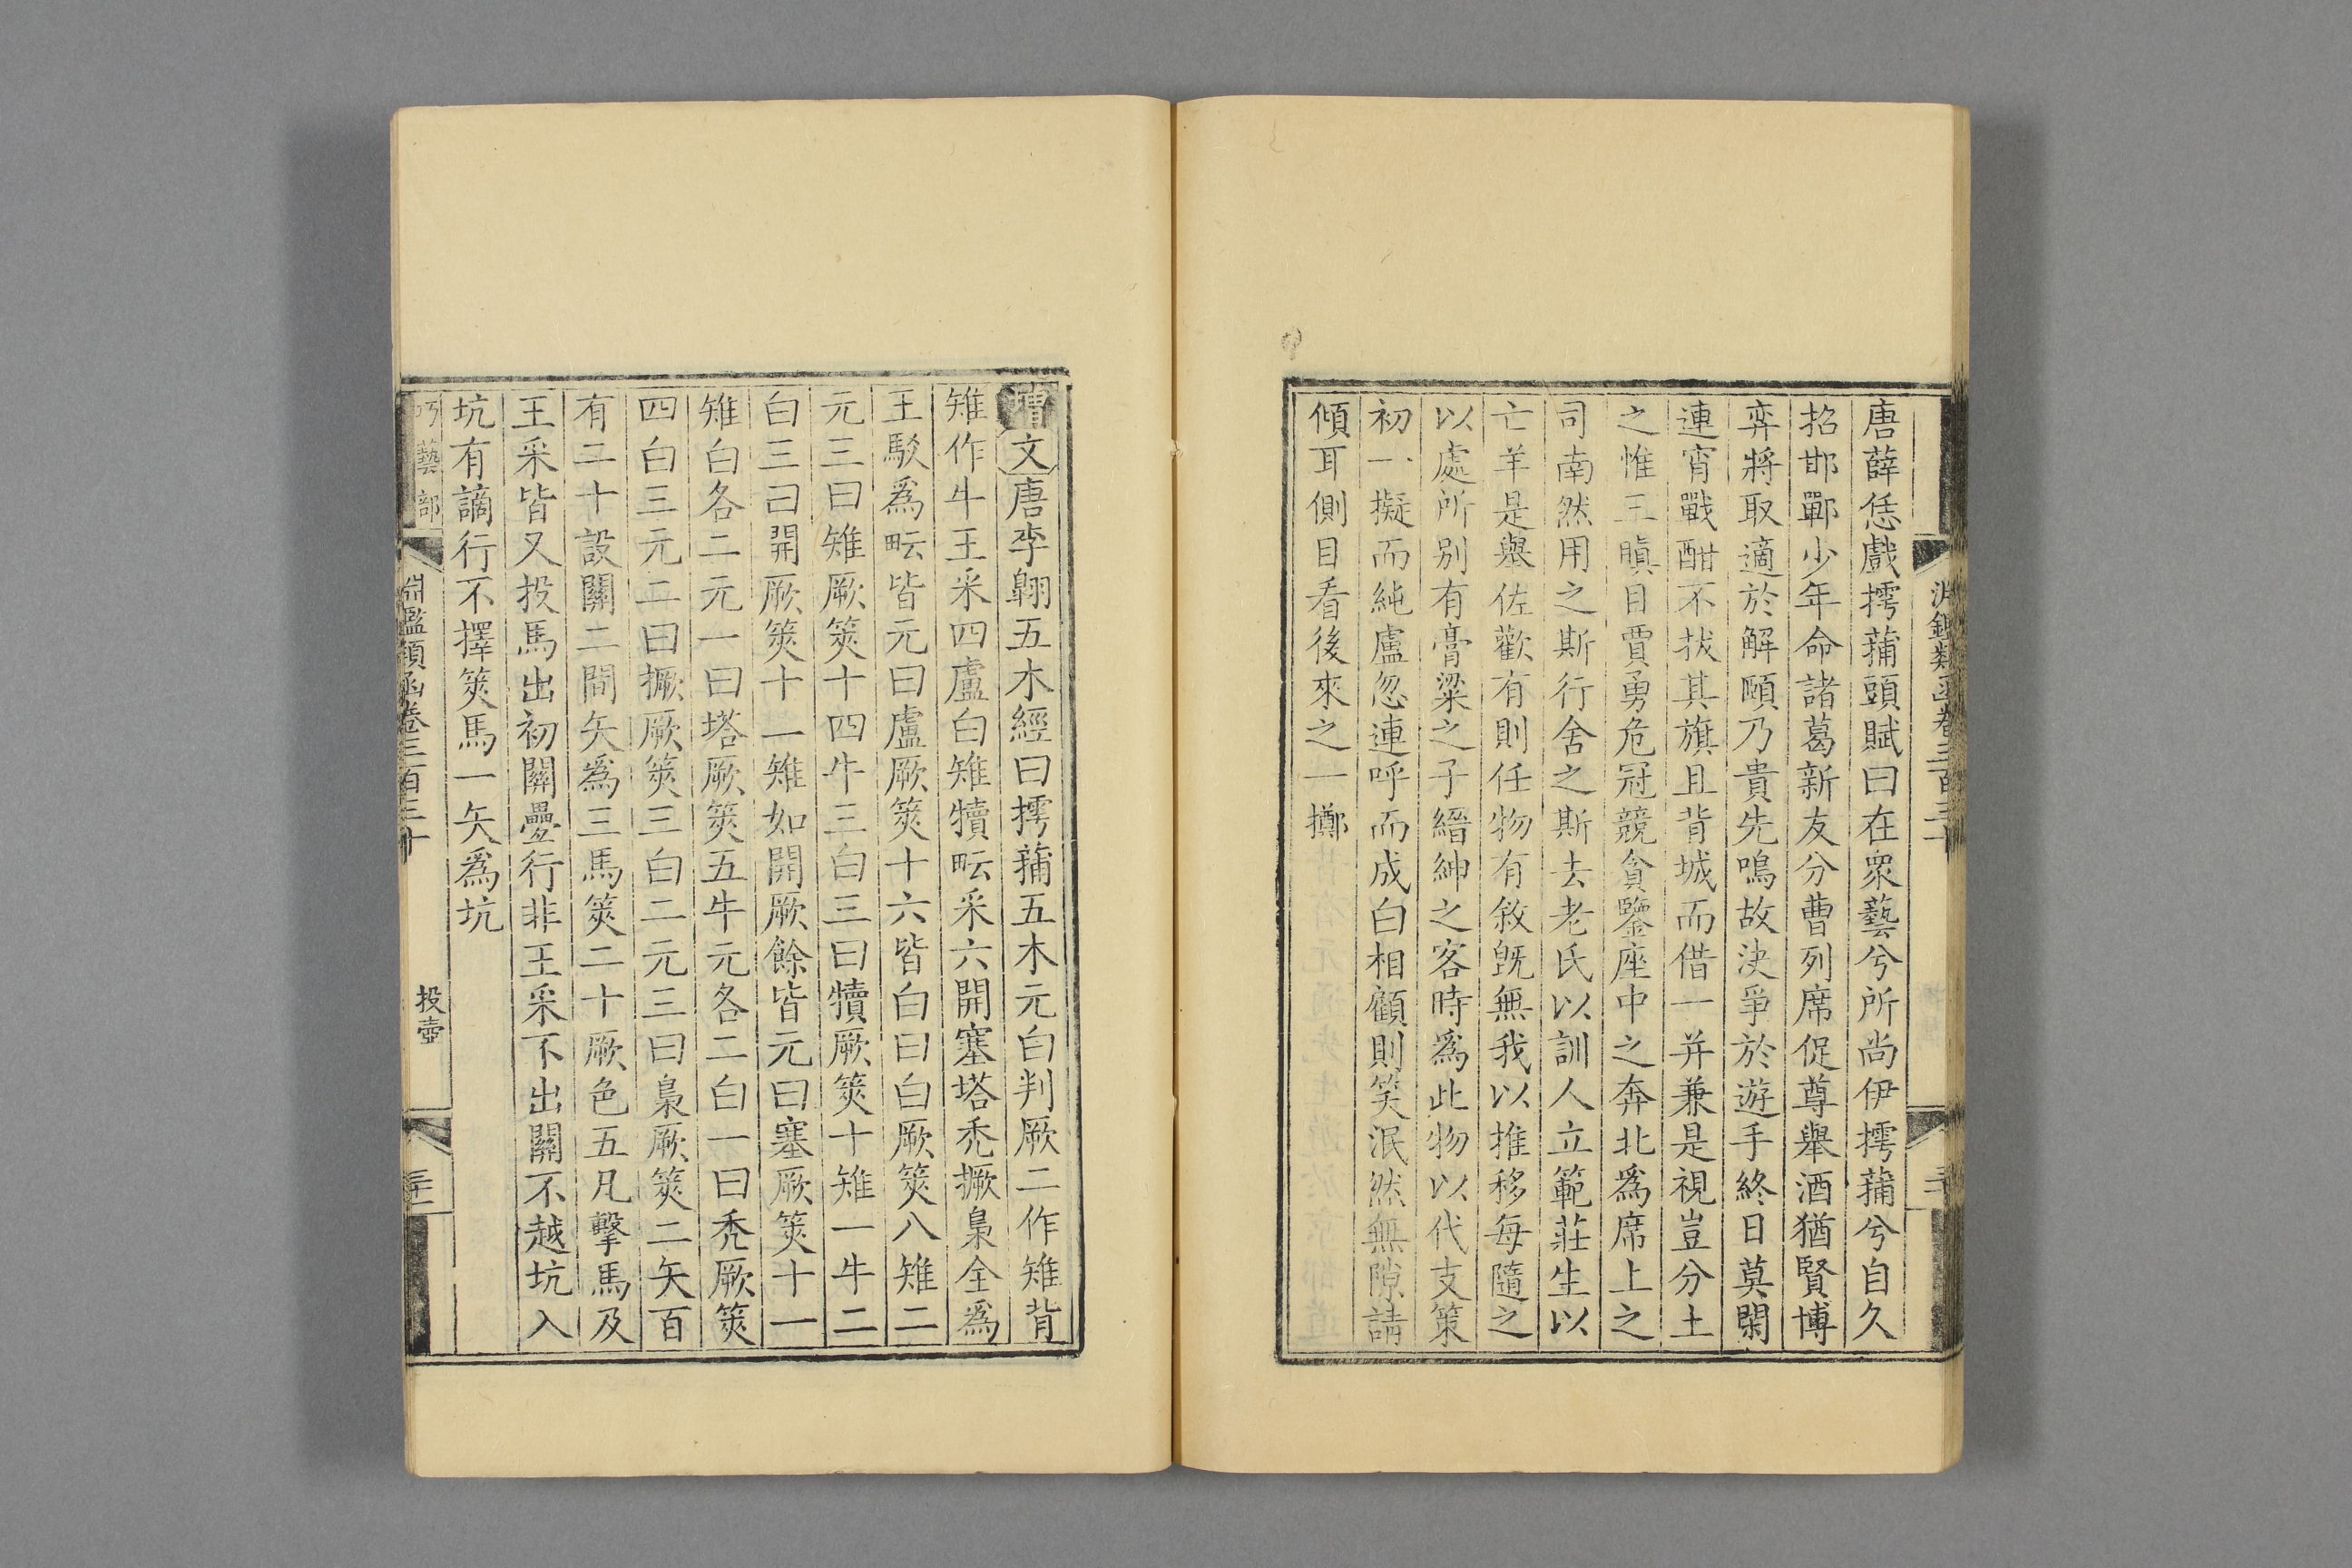 唐薛恁戲摴蒱頭賦曰在衆藝兮所尚伊摴蒱兮自久
招邯鄲少年命諸葛新友分曹列席促尊舉酒猶賢博
弈將取適於解頤乃貴先鳴故決爭於遊手終日莫閑
連宵戰酣不拔其旗且背城而借一并兼是視豈分土
之惟三瞋目賈勇危冠競貪鑒座中之奔北爲席上之
司南然用之斯行舍之斯去老氏以訓人立範莊生以
亡羊是舉佐歡有則任物有敘旣無我以推移每隨之
以處所别有膏粱之子縉紳之客時爲此物以代支策
初一擬而純盧忽連呼而成白相顧則笑泯然無隙請
傾耳側目看後來之一擲
增文唐李翶五木經曰摴蒱五木元白判厥二作雉背
雉作牛王采四盧白雉犢甿采六開塞塔禿撅梟全爲
王駁爲甿皆元曰盧厥筴十六皆白曰白厥筴八雉二
元三曰雉厥筴十四牛三白三曰犢厥筴十雉一牛二
白三曰開厥筴十一雉如開厥餘皆元曰塞厥筴十一
雉白各二元一曰塔厥筴五牛元各二白一曰禿厥筴
四白三元二曰撅厥筴三白二元三曰梟厥筴二矢百
有二十設關二間矢爲三馬筴二十厥色五凡擊馬及
王采皆又投馬出初關疊行非王采不出關不越坑入
坑有謫行不擇筴馬一矢爲坑
巧藝部
淵鑑類函卷三百三十
投壺